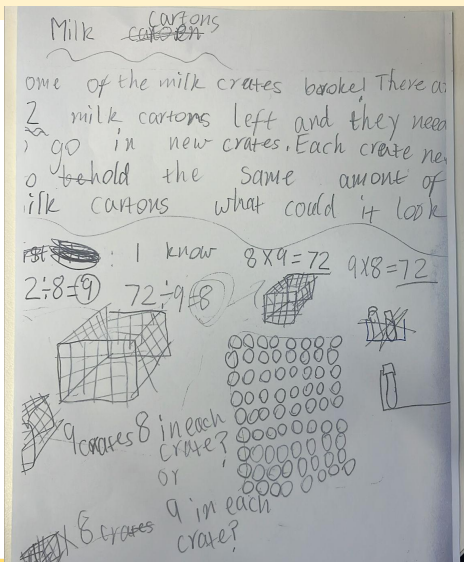 Milk cartons
ome of the milk crates broke! There a
2 milk cartons left and they need
go in new crates. Each crate ne
o hold the same amont of
ilk cartons what could it look
rst : I know 8x9=72 9x8=72
2÷8=9 72÷9=8
9 crates 8 in each
crate?
or
8 crates 9 in each
crate?